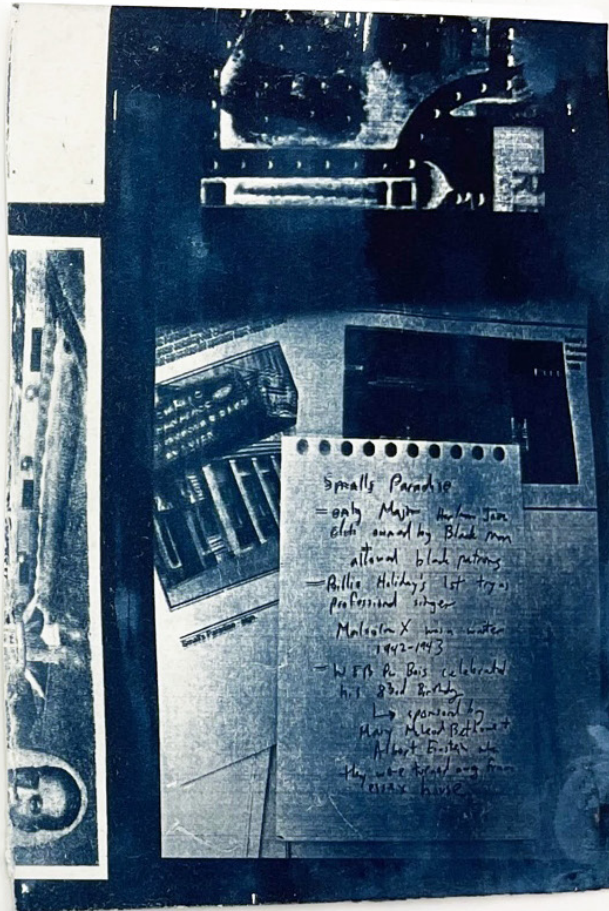 Smalls Paradise
= only Major Harlem Jazz
club owned by Black man
allowed black patrons
= Billie Holiday's 1st try as
professional singer
Malcolm X was a waiter
1942-1943
= W E B Du Bois celebrated
his 83rd Birthday
↳ sponsored by
Mary McLeod Bethune +
Albert Einstein
they were turned away from
essex house
Small's Paradise